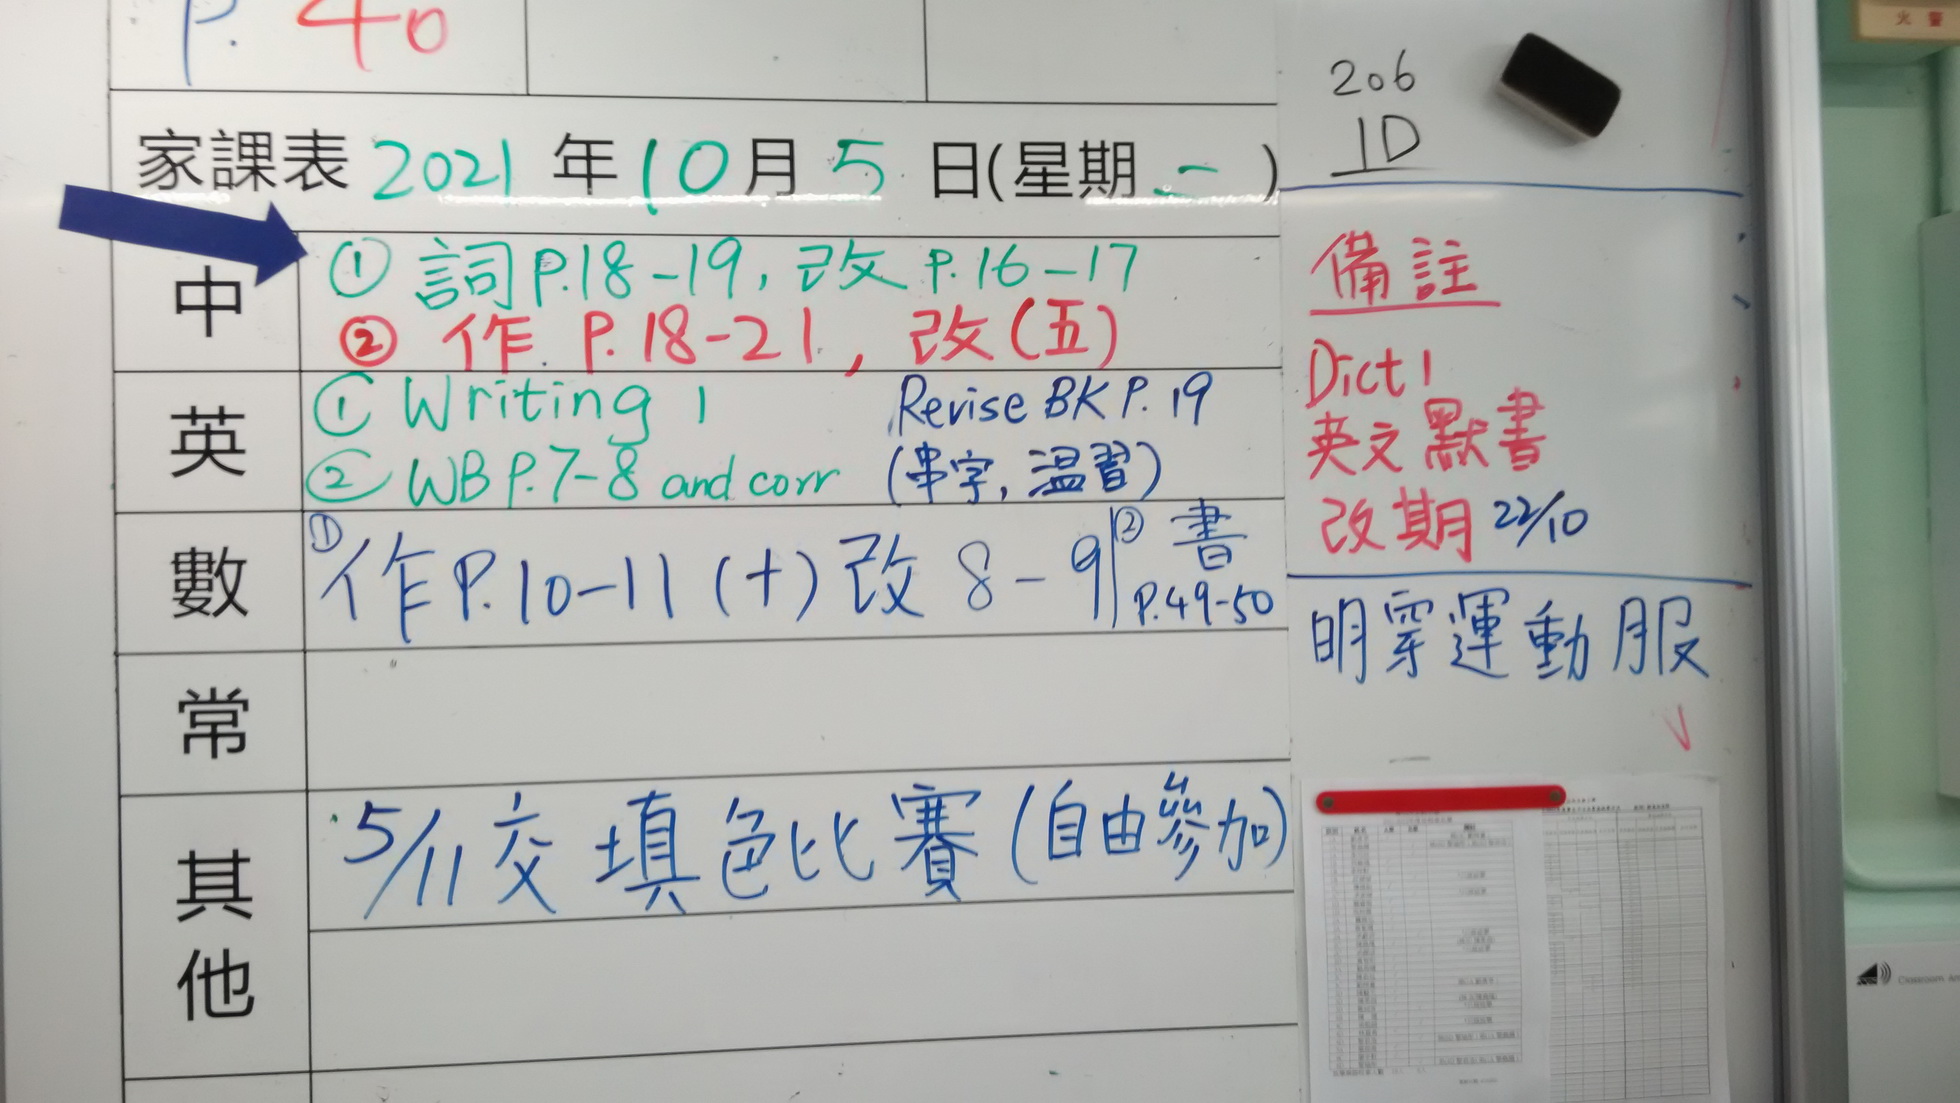 P. 40
家課表 2021 年 10 月 5 日(星期 二 )
中
① 詞 P.18-19, 改 P.16-17
② 作 P.18-21, 改(五)
英
① Writing 1
Revise BK P.19
② WB P.7-8 and corr
(串字, 温習)
數
① 作 P.10-11 (十) 改 8-9
② 書
P.49-50
常
其他
5/11 交 填色比賽 (自由參加)
206
1D
備註
Dict 1
英文默書
改期 22/10
明穿運動服
火警